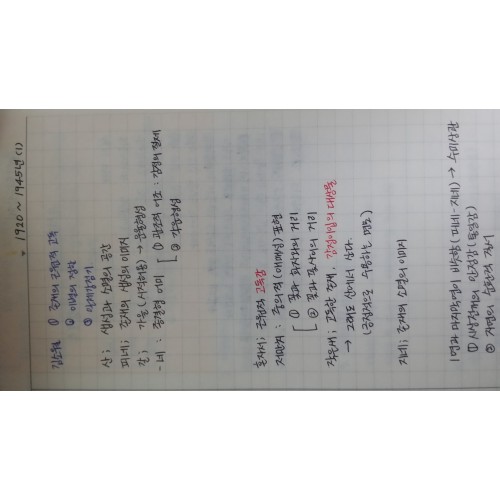 1920 ~ 1945년 (1)
김소월 ① 존재의 근원적 고독
② 이별의 정한
③ 산유화
산; 생성과 소멸의 공간
피네; 존재의 생성의 이미지
갈; 가을 (시적허용) → 운율형성
-네: 종결형 어미 [ ① 관조적 어조: 감정의 절제
② 각운형성
혼자서; 근원적 고독감
저만치; 중의적 (애매성) 표현
[ ① 꽃과 화자와의 거리
② 꽃과 꽃사이의 거리
작은새; 고독한 존재, 감정이입의 대상물
→ 그래도 산에서 산다.
(긍정적으로 수용하는 태도)
지네; 존재의 소멸의 이미지
1연과 마지막연이 비슷함 (피네-지네) → 수미상관
① 시상전개의 안정감 (통일감)
② 자연의 순환적 질서